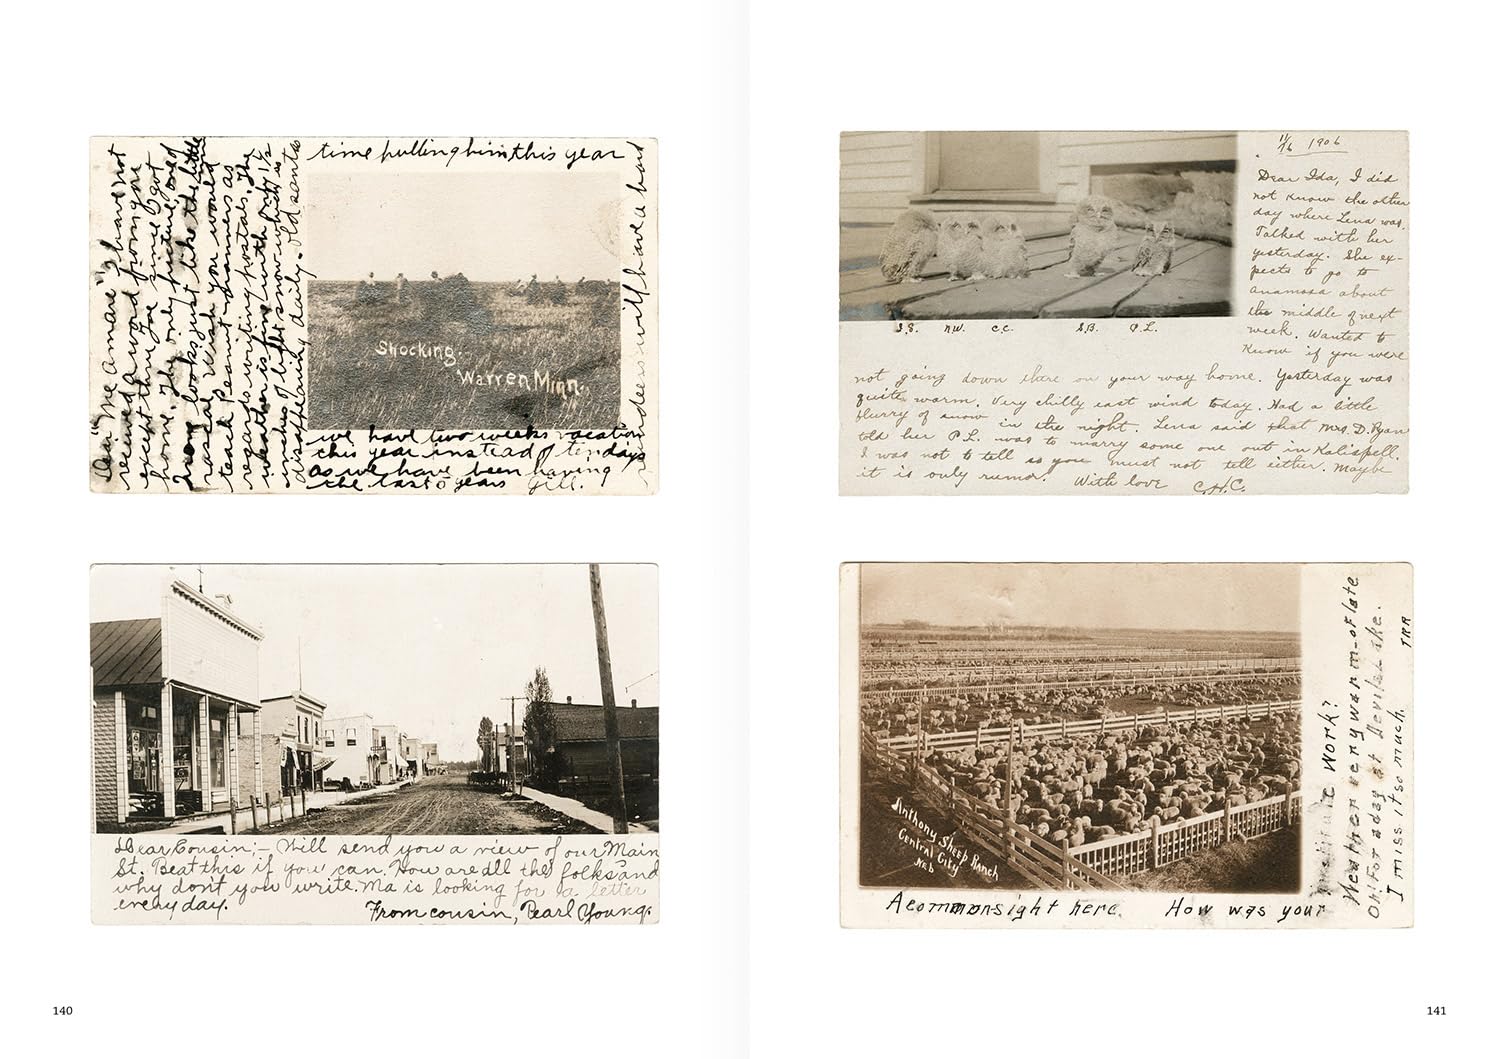 "Dear "me a mare", I have not
received a word from you
except three for since I got
home. The only picture, one of
looks just like the little
rascal. Wish you would come
teach Peanut manners as
regards writing postals. The
weather is fine, with only 1 1/2
inches of light snow which is
disappearing daily. Old santa
time pulling him this year
reindeers will have a hard
Shocking.
Warren Minn.
we have two weeks vacation
this year instead of ten days
as we have been having
the last 5 years Gill.
Dear Cousin;- Will send you a view of our Main
St. Beat this if you can. How are all the folks and
why don't you write. Ma is looking for a letter
every day.
From cousin, Pearl Young.
140
11/16 1906
Dear Ida, I did
not know the other
day where Lena was.
Talked with her
yesterday. She ex-
pects to go to
Anamosa about
the middle of next
week. Wanted to
know if you were
S.S. N.W. C.C. S.B. P.L.
not going down there on your way home. Yesterday was
quite warm. Very chilly east wind today. Had a little
flurry of snow in the night. Lena said that Mrs. D. Ryan
told her P.L. was to marry some one out in Kalispell.
I was not to tell so you must not tell either. Maybe
it is only rumor. With love C.H.C.
Anthony Sheep Ranch
Central City
Neb
A common sight here. How was your
institute work?
Weather very warm-of late
Oh! For a day at Devils Lake.
I miss it so much.
TRR
141